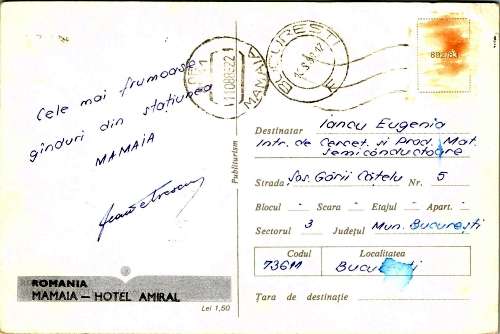 Cele mai frumoase
gînduri din stațiunea
MAMAIA
ROMANIA
MAMAIA — HOTEL AMIRAL
Lei 1,50
Publiturism
MAMAIA
BUCUREȘTI
892/83
Destinatar Iancu Eugenia
Intr. de Cercet. și Prod. Mat.
Semiconductoare
Strada Șos. Gării Cățelu Nr. 5
Blocul - Scara - Etajul - Apart. -
Sectorul 3 Județul Mun. București
Codul Localitatea
73611 București
Țara de destinație